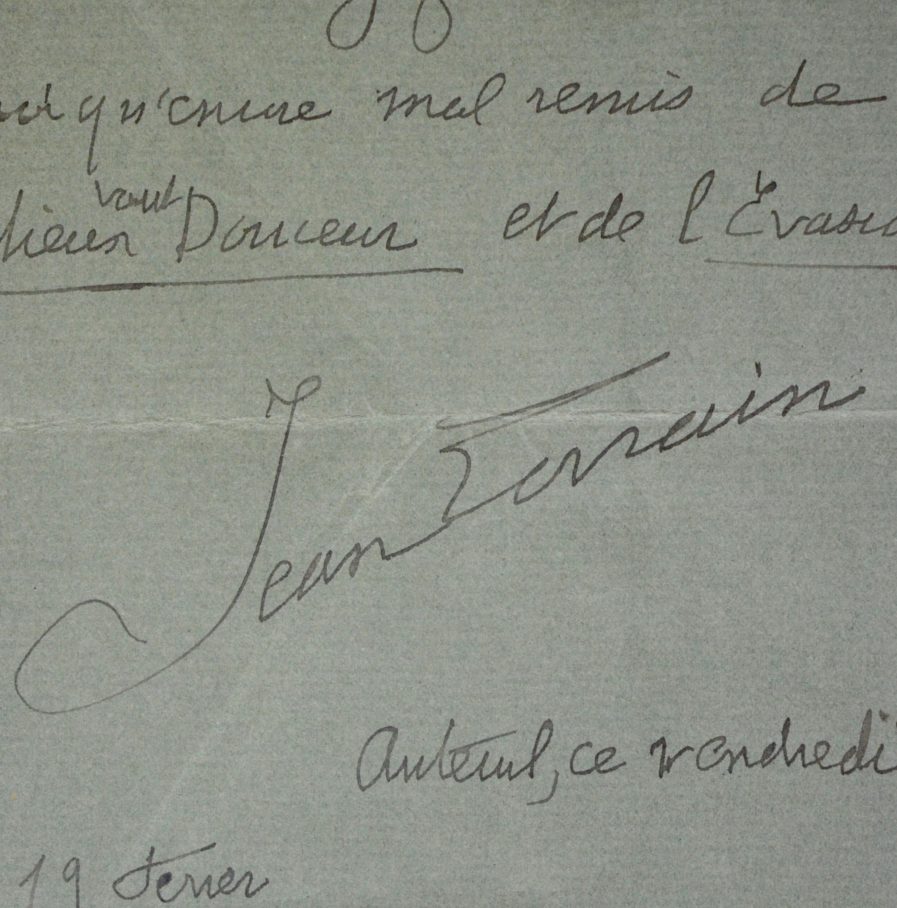 qu'encore mal remis de
vaut
Douceur et de l'Évasi
Jean Lorrain
Auteuil, ce vendredi
19 fevrier